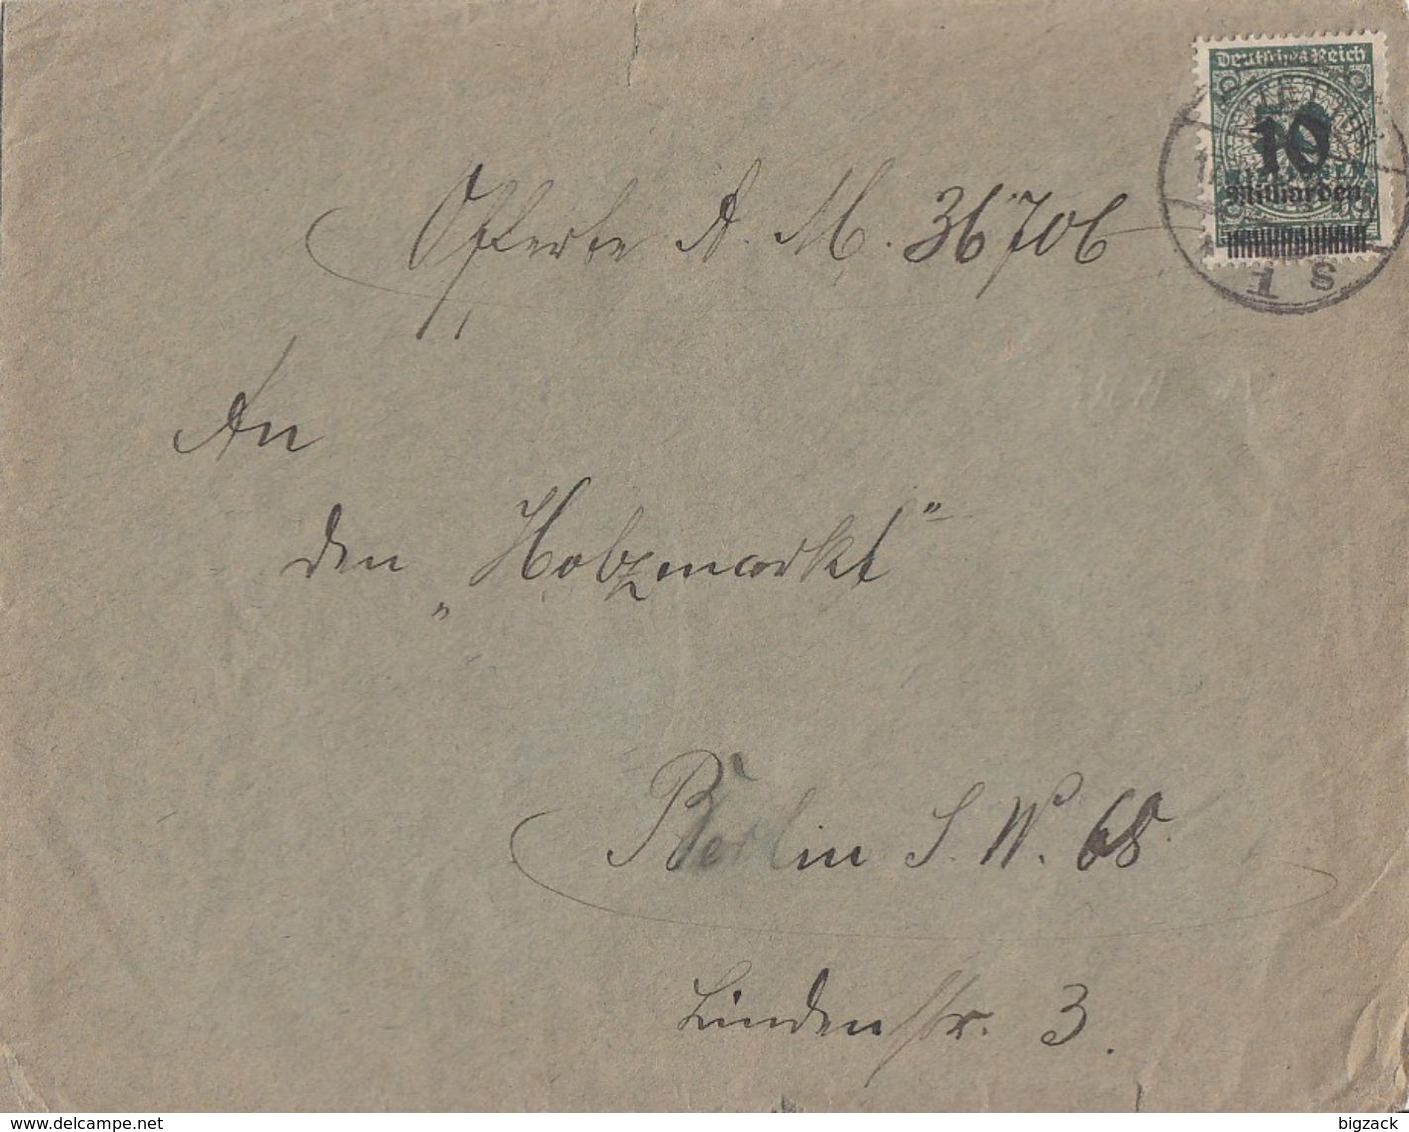 Deutsches Reich
10
Milliarden
Offerte A. M. 36706
An
den „Holzmarkt"
Berlin S. W. 68.
Lindenstr. 3.
bigzack